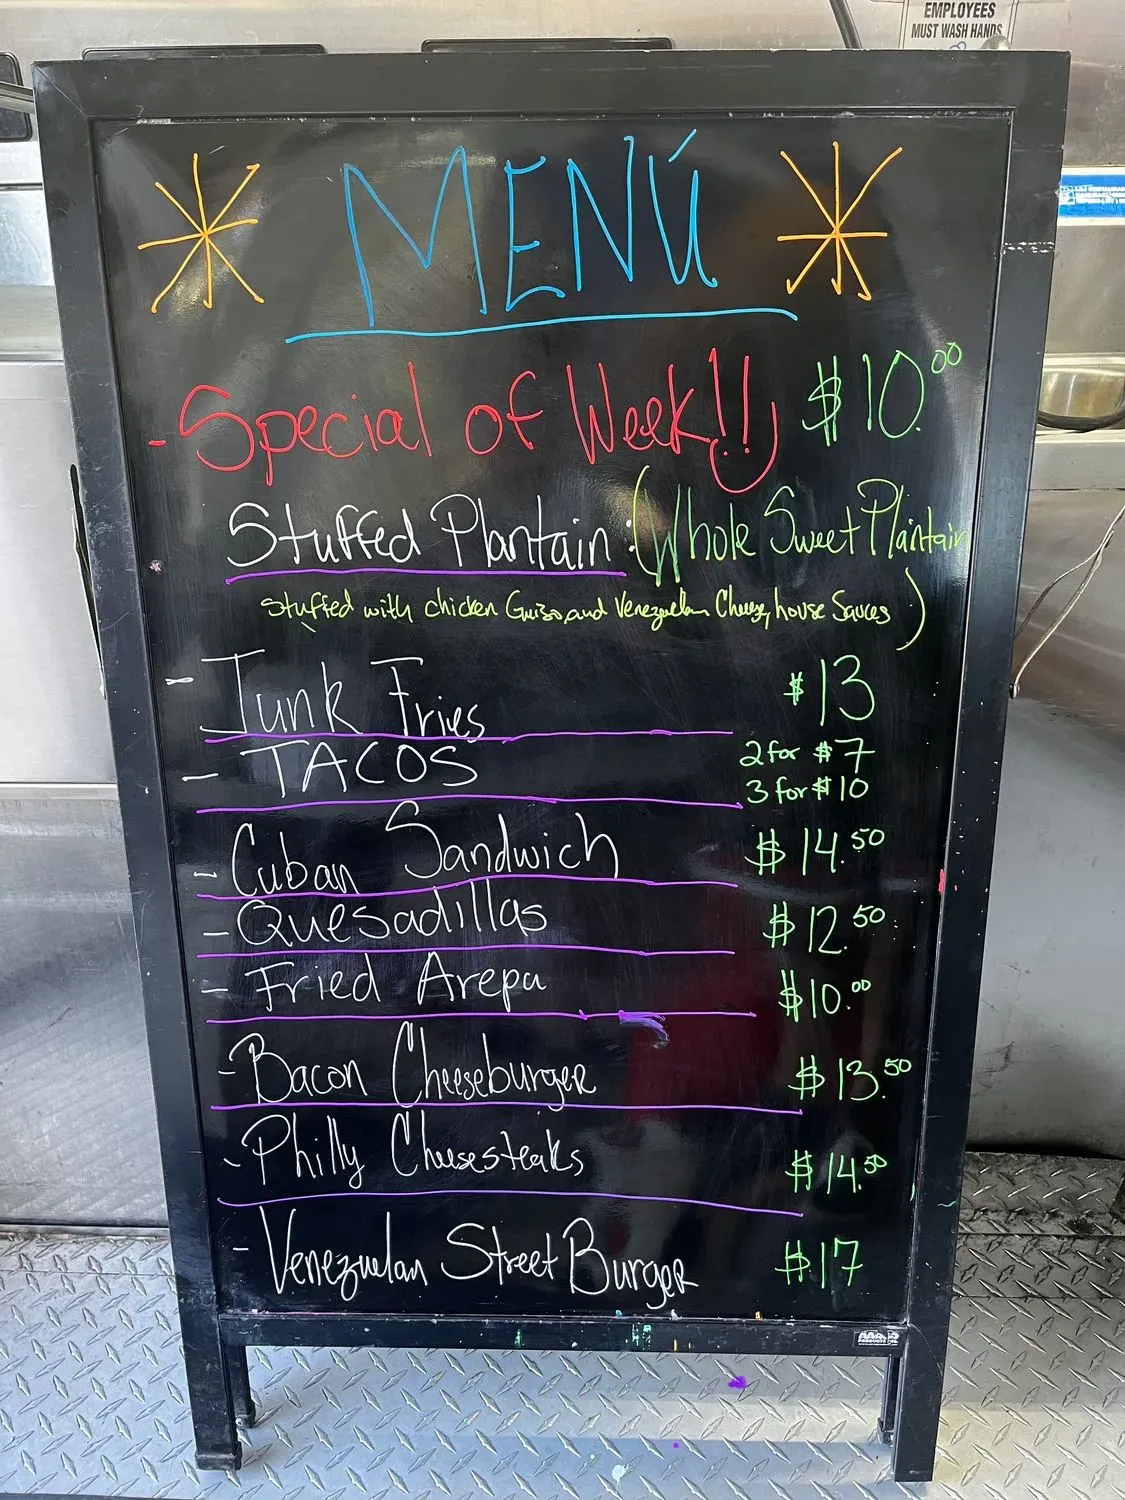 EMPLOYEES
MUST WASH HANDS
MENÚ
- Special of Week!! $10.00
Stuffed Plantain: (Whole Sweet Plantain
stuffed with chicken Guiso, and Venezuelan Cheese, house Sauces)
- Junk Fries $13
- TACOS 2 for $7
3 for $10
- Cuban Sandwich $14.50
- Quesadillas $12.50
- Fried Arepa $10.00
- Bacon Cheeseburger $13.50
- Philly Cheesesteaks $14.50
- Venezuelan Street Burger $17